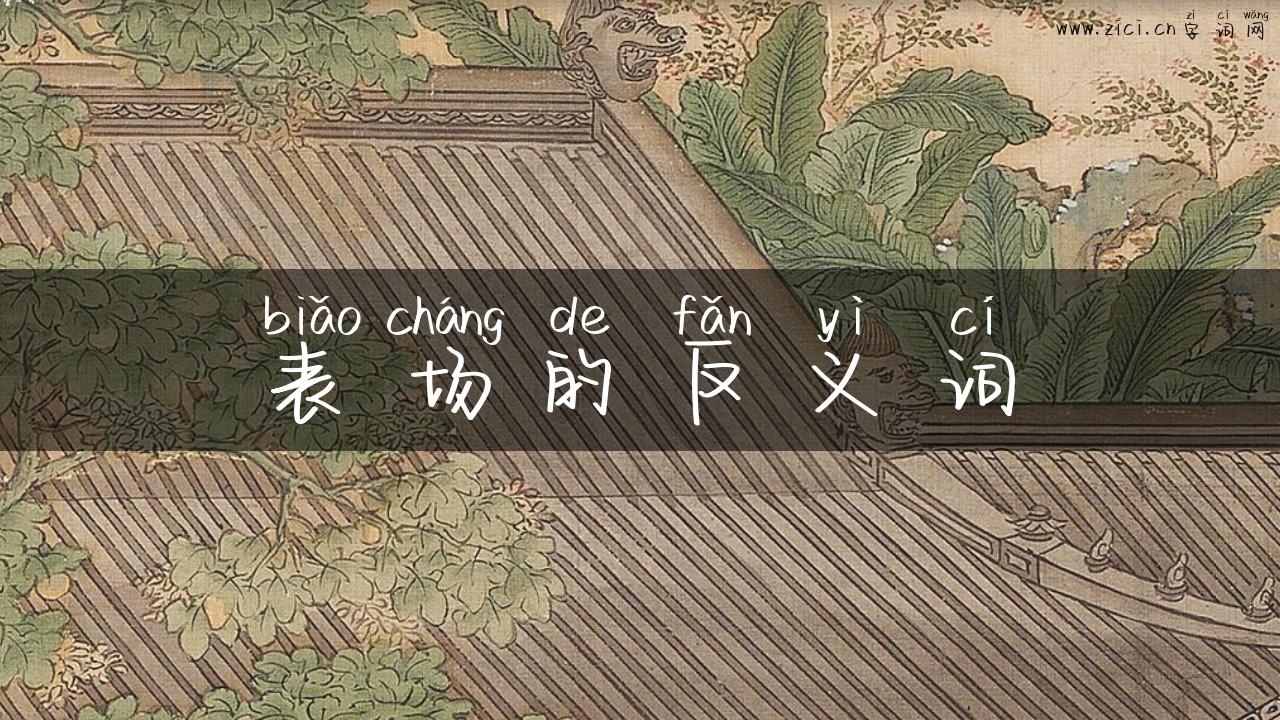 zì cí wǎng
www.zici.cn 字词网
biǎo cháng de fǎn yì cí
表场的反义词